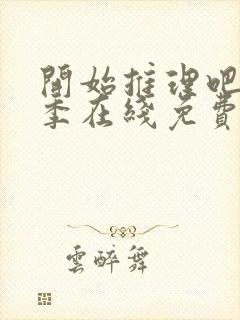 開始推理吧
季在綫免費
雲醉舞